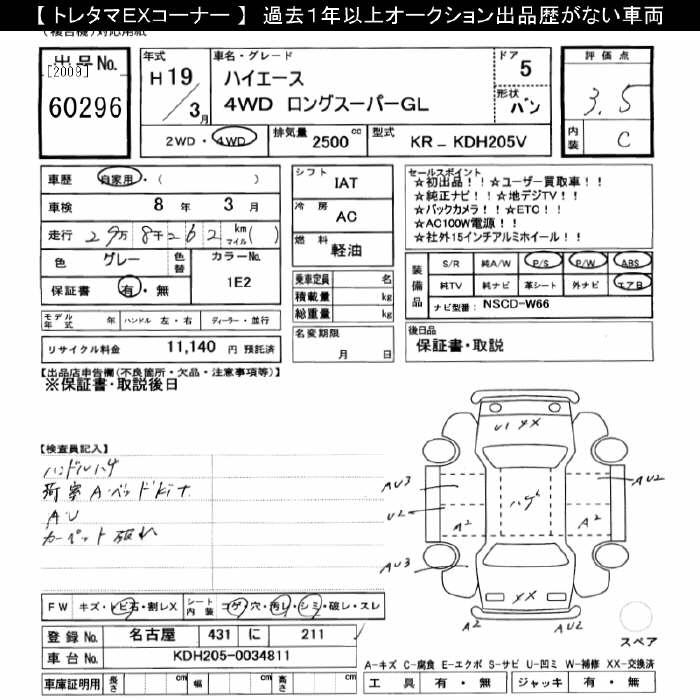 【 トレタマEXコーナー 】 過去1年以上オークション出品歴がない車両
(複合機)対応用紙
出品No.
[2009]
60296
年式
H19/3月
車名・グレード
ハイエース
4WD ロングスーパーGL
ドア
5
形状
バン
評価点
3.5
内装
C
2WD・4WD
排気量 2500cc
型式 KR-KDH205V
車歴 自家用・( )
車検 8年 3月
走行 29万8千262 km マイル( )
色 グレー
色替
カラーNo.
1E2
保証書 有・無
モデル年式 年 ハンドル 左・右 ディーラー・並行
リサイクル料金 11,140 円 預託済
シフト IAT
冷房 AC
燃料 軽油
乗車定員 名
積載量 kg
総重量 kg
名変期限
月 日
セールスポイント
☆初出品!!☆ユーザー買取車!!
☆純正ナビ!!☆地デジTV!!
☆バックカメラ!!☆ETC!!
☆AC100W電源!!
☆社外15インチアルミホイール!!
装備品
S/R 純A/W P/S P/W ABS
純TV 純ナビ 革シート 外ナビ エアB
ナビ型番: NSCD-W66
後日品
保証書・取説
【出品店申告欄(不良箇所・欠品・注意事項等)】
※保証書・取説後日
【検査員記入】
ハンドルハゲ
荷室A・ベッドキット
AU
カーペット破れ
U1 XX
AU3
U2
A2
AU3
ハゲ
AU2
A2
XX
A2
AU2
スペア
FW キズ・トビ石・割レX
シート内装 コゲ・穴・汚レ・シミ・破レ・スレ
登録No. 名古屋 431 に 211
車台No. KDH205-0034811
車庫証明用 長さ cm 幅 cm 高さ cm
A-キズ C-腐食 E-エクボ S-サビ U-凹ミ W-補修 XX-交換済
工具 有・無 ジャッキ 有・無